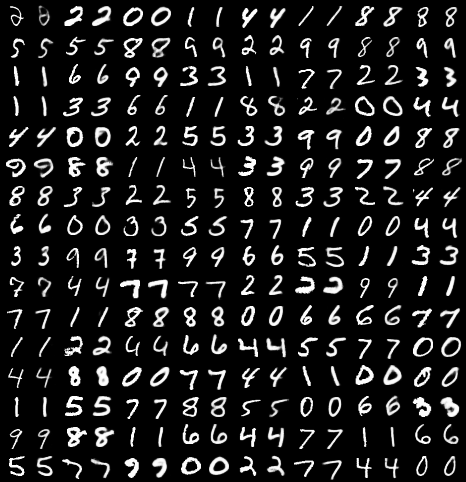 2 2 2 0 0 1 1 4 4 1 1 8 8 8 8
5 5 5 5 8 8 9 9 2 2 9 9 8 8 9 9
1 1 6 6 9 9 3 3 1 1 7 7 2 2 3 3
1 1 3 3 6 6 1 1 8 8 2 2 0 0 4 4
4 4 0 0 2 2 5 5 3 3 9 9 0 0 8 8
9 9 8 8 1 1 4 4 3 3 9 9 7 7 8 8
8 8 3 3 2 2 5 5 8 8 3 3 2 2 4 4
6 6 0 0 3 3 5 5 7 7 1 1 0 0 4 4
3 3 9 9 7 7 9 9 6 6 5 5 1 1 3 3
7 7 4 4 7 7 7 7 2 2 2 2 9 9 1 1
7 7 1 1 8 8 8 8 0 0 6 6 6 6 7 7
1 1 2 2 4 4 6 6 4 4 5 5 7 7 0 0
4 4 8 8 0 0 7 7 4 4 1 1 0 0 0 0
1 1 5 5 7 7 8 8 5 5 0 0 6 6 3 3
9 9 8 8 1 1 6 6 4 4 7 7 1 1 6 6
5 5 7 7 9 9 0 0 2 2 7 7 4 4 0 0